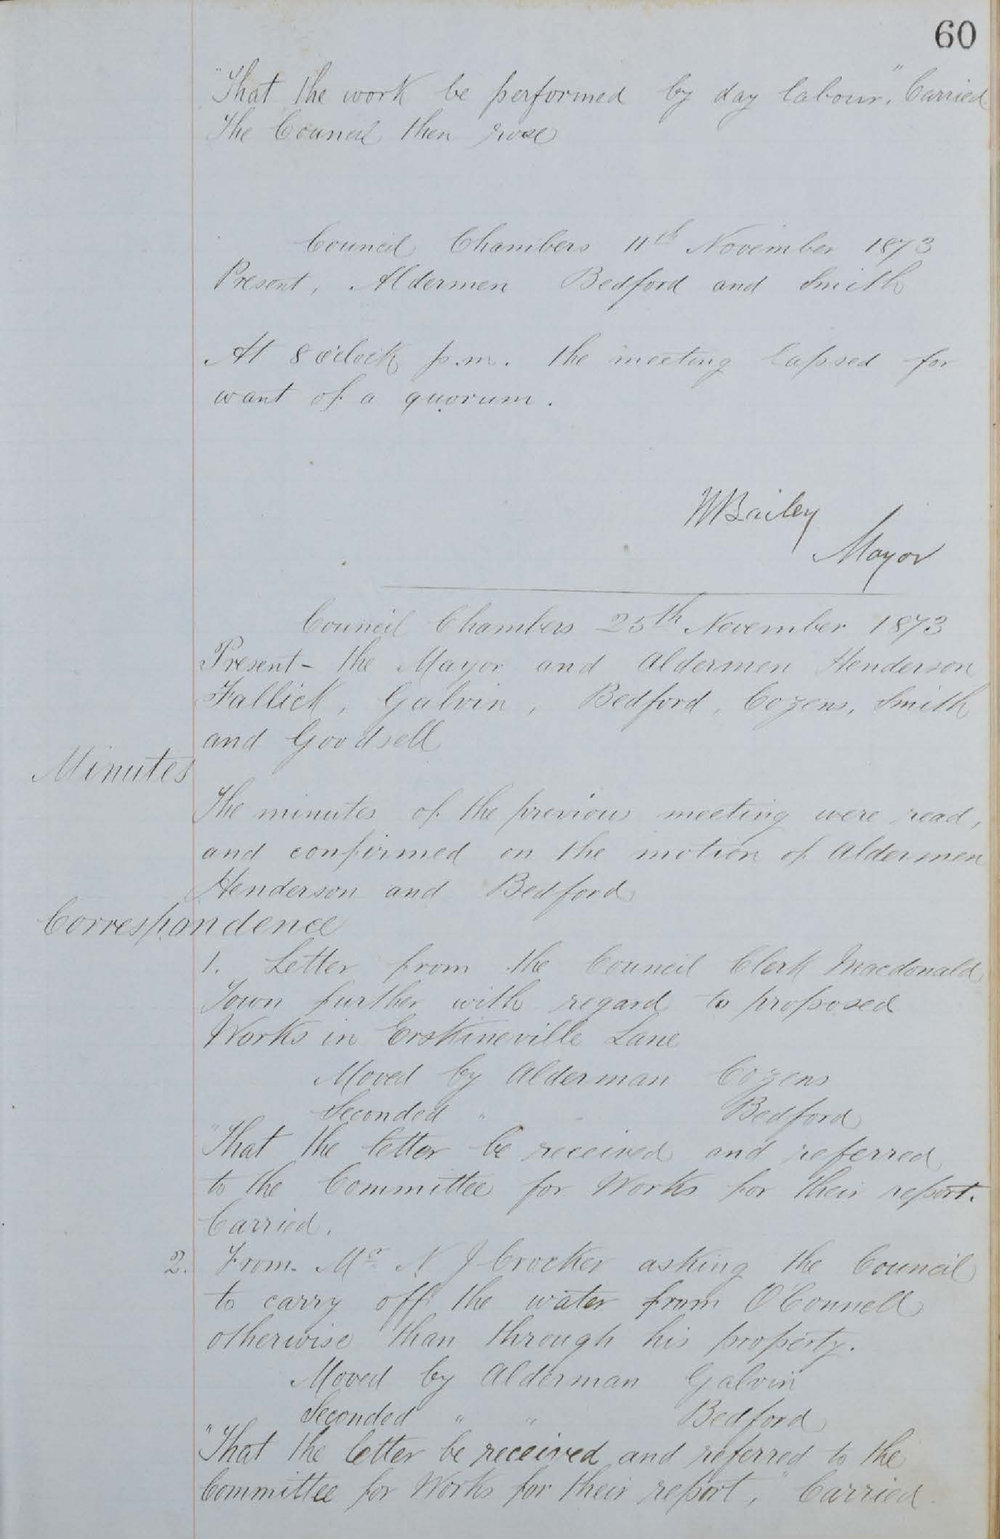 60
"That the work be performed by day labour." Carried
The Council then rose
Council Chambers 11th November 1873
Present, Aldermen Bedford and Smith
At 8 o'clock p.m. the meeting lapsed for
want of a quorum.
W Bailey
Mayor
Council Chambers 25th November 1873
Present - the Mayor and Aldermen Henderson
Fallick, Galvin, Bedford, Cozens, Smith
and Goodsell
Minutes
The minutes of the previous meeting were read,
and confirmed on the motion of Aldermen
Henderson and Bedford
Correspondence
1. Letter from the Council Clerk Macdonald
Town further with regard to proposed
Works in Erskineville Lane
Moved by Alderman Cozens
Seconded " Bedford
"That the letter be received and referred
to the Committee for Works for their report.
Carried.
2. From Mr N J Crocker asking the Council
to carry off the water from O'Connell
otherwise than through his property.
Moved by Alderman Galvin
Seconded " " Bedford
"That the letter be received and referred to the
Committee for Works for their report," Carried